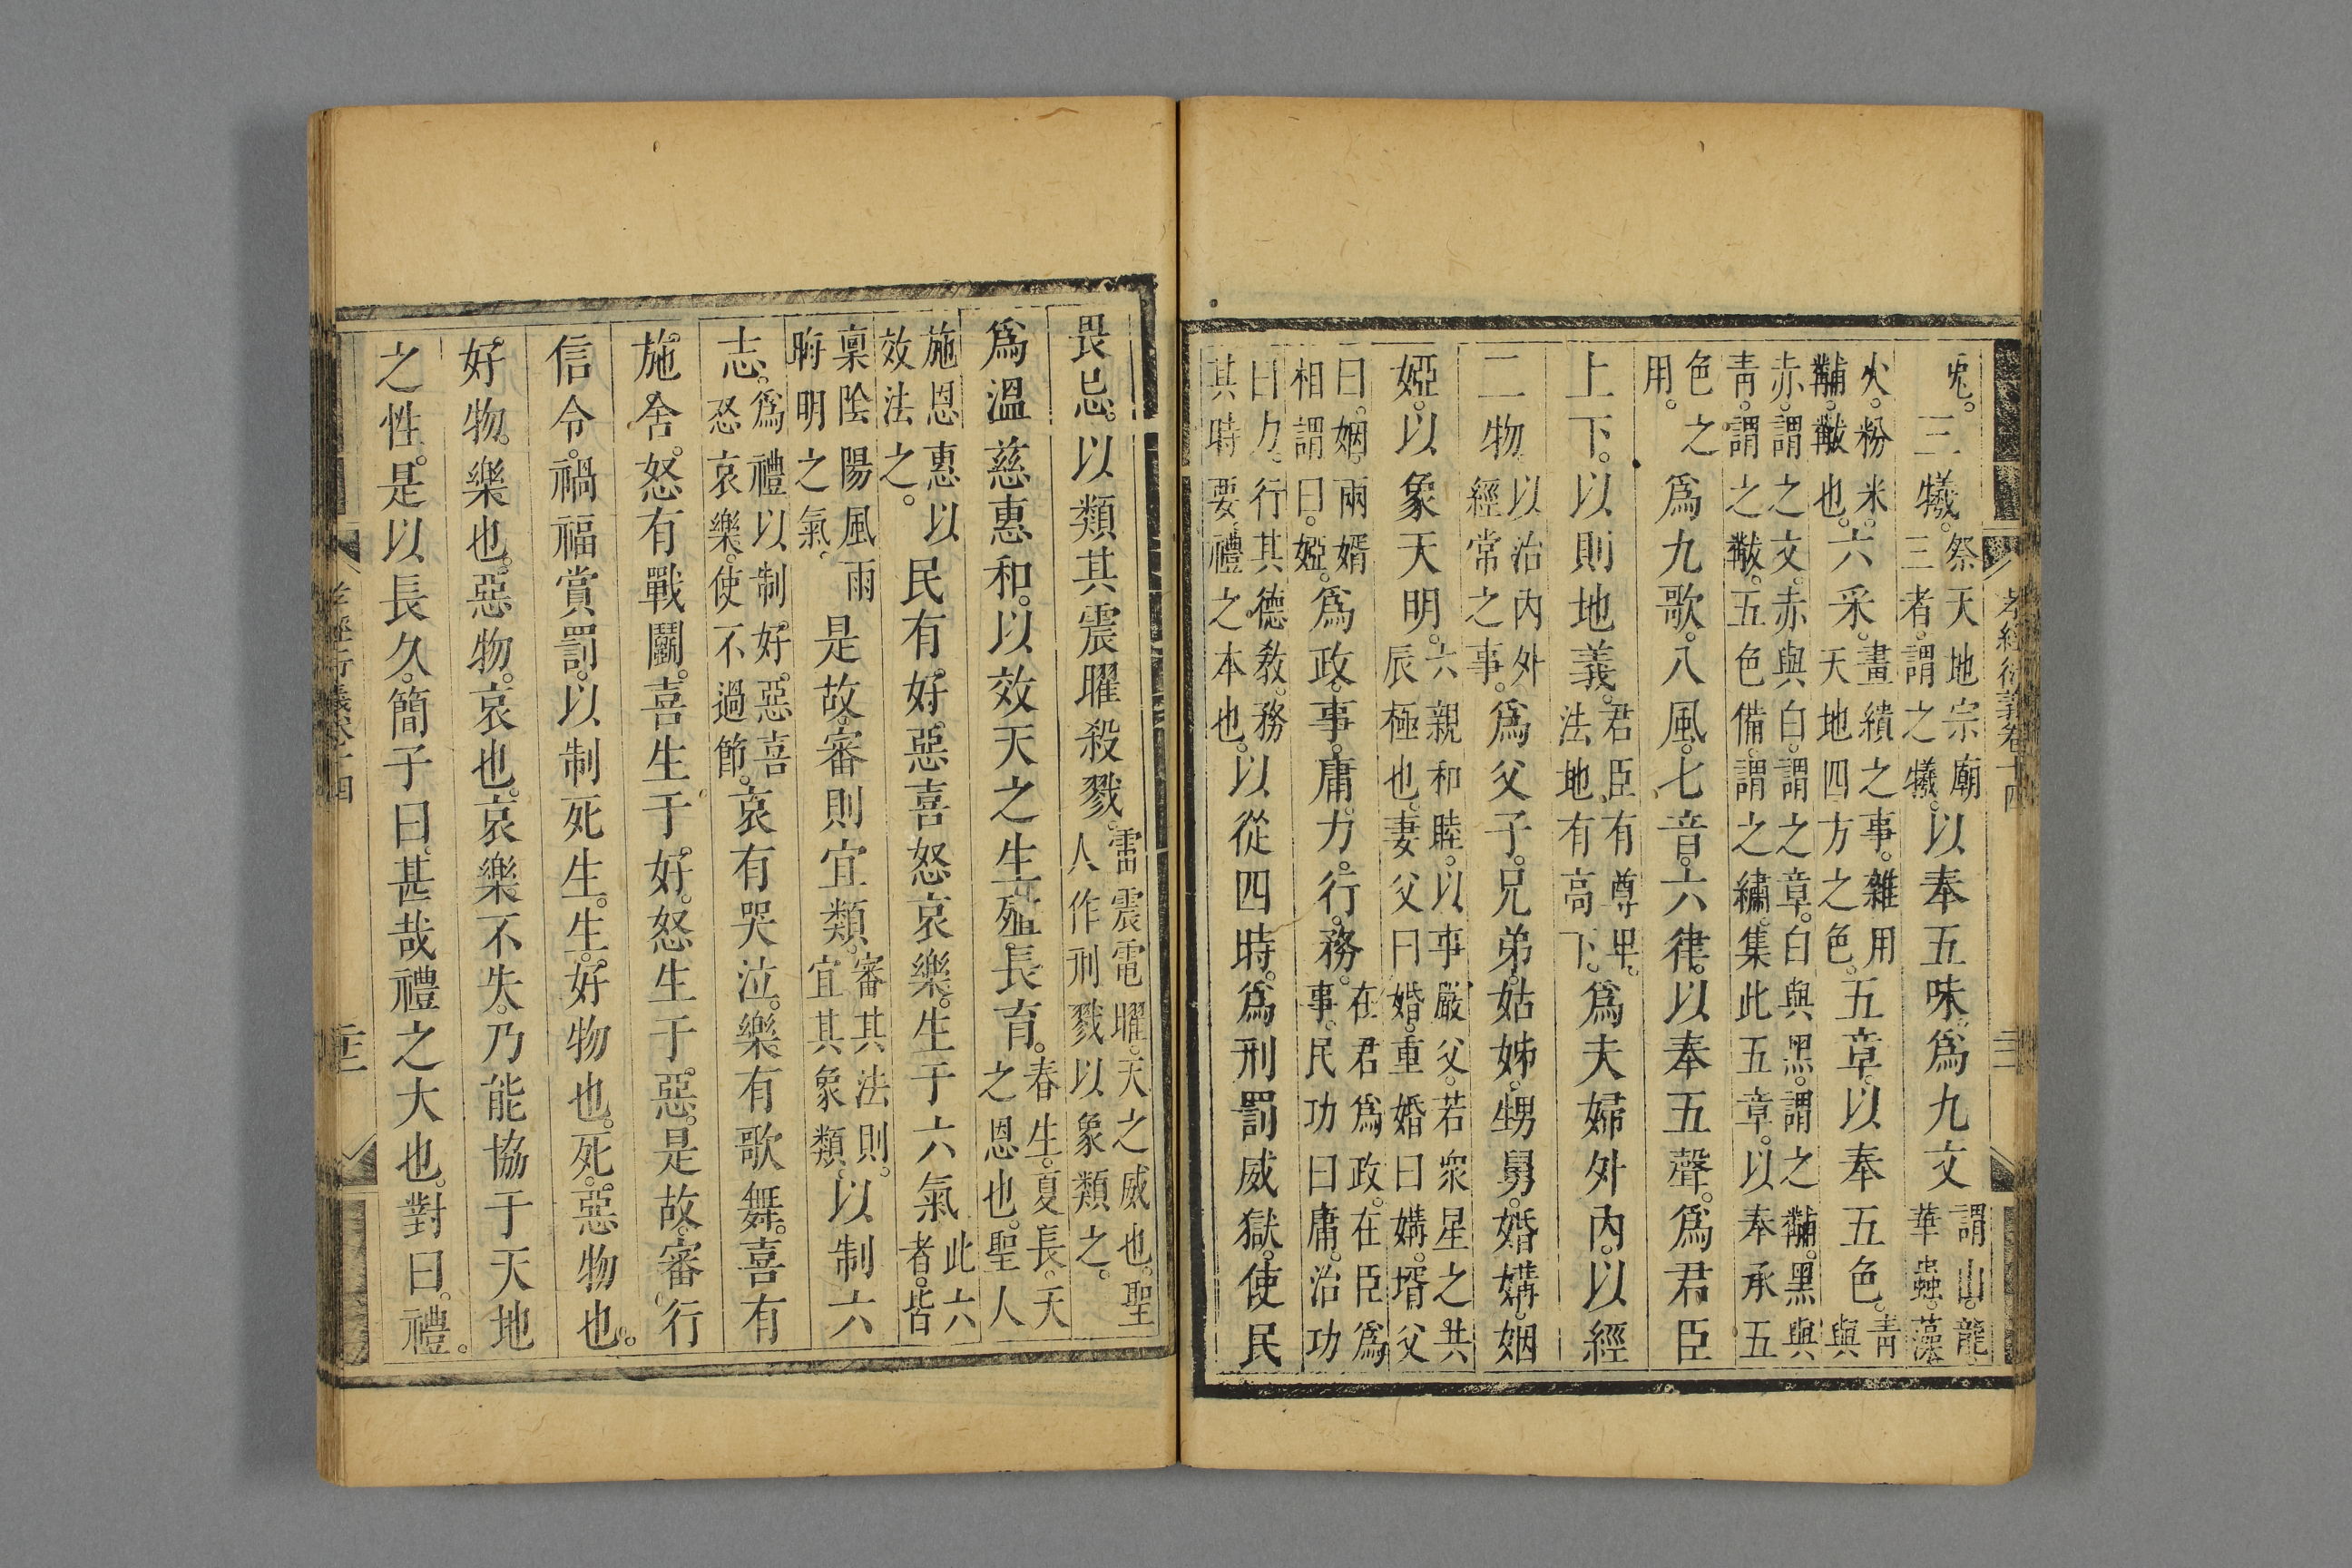 孝經衍義卷十四
兎。三犧。祭天地宗廟三者。謂之犧。以奉五味。爲九文謂山。龍華蟲。藻
火。粉米。黼。黻也。六采。畫繢之事。雜用天地四方之色。五章。以奉五色。青與
赤。謂之文。赤與白。謂之章。白與黑。謂之黼。黑與
青。謂之黻。五色備。謂之繡。集此五章。以奉承五
色之用。爲九歌。八風。七音。六律。以奉五聲。爲君臣
上下。以則地義。君臣有尊卑。法地有高下。爲夫婦外内。以經
二物以治内外經常之事。爲父子。兄弟。姑姊。甥舅。婚媾。姻
婭。以象天明。六親和睦。以事嚴父。若衆星之共辰極也。妻父曰婚。重婚曰媾。壻父
曰姻。兩婿相謂曰婭。爲政。事。庸。力。行。務。在君爲政。在臣爲事。民功曰庸。治功
曰力。行其德敎。務其時要。禮之本也。以從四時。爲刑罰威獄。使民
畏忌。以類其震曜殺戮。雷震電曜。天之威也。聖人作刑戮以象類之。
爲溫慈惠和。以效天之生殖長育。春生。夏長。天之恩也。聖人
施恩惠以效法之。民有。好。惡喜怒哀樂。生于六氣此六者。皆
稟陰陽風雨晦明之氣。是故審則宜類。審其法則。宜其象類。以制六
志。爲禮以制好。惡喜怒哀樂。使不過節。哀有哭泣。樂有歌舞。喜有
施。舍。怒有戰鬭。喜生于。好。怒生于。惡。是故。審行
信令。禍福賞罰。以制死生。生。好物也。死。惡物也。
好物。樂也。惡物。哀也。哀樂不失。乃能協于天地
之性。是以長久。簡子曰。甚哉禮之大也。對曰。禮。
孝經衍義卷十四